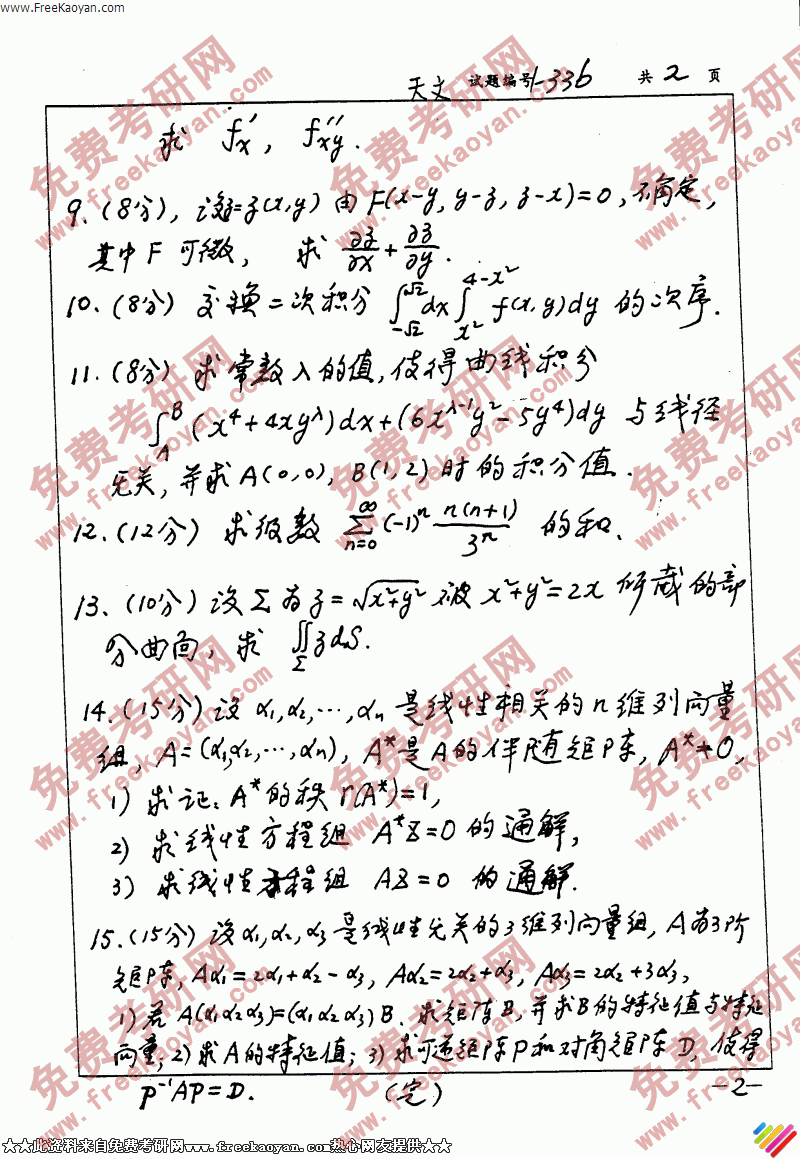 www.FreeKaoyan.com
天文 试题编号 336 共 2 页
求 f'x , f''xy .
9. (8分), 设z=z(x,y) 由 F(x-y, y-z, z-x)=0, 所确定,
其中 F 可微, 求 ∂z/∂x + ∂z/∂y .
10. (8分) 交换二次积分 ∫_{-√2}^{√2} dx ∫_{x²}^{4-x²} f(x,y)dy 的次序.
11. (8分) 求常数 λ 的值, 使得曲线积分
∫_A^B (x⁴+4xy^λ)dx+(6x^{λ-1}y²-5y⁴)dy 与线径
无关, 并求 A(0,0), B(1,2) 时的积分值.
12. (12分) 求级数 ∑_{n=0}^∞ (-1)^n n(n+1)/3^n 的和.
13. (10分) 设 Σ 为 z=√(x²+y²) 被 x²+y²=2x 所截的部
分曲面, 求 ∬_Σ zdS.
14. (15分) 设 α1,α2,…,αn 是线性相关的 n 维列向量
组, A=(α1,α2,…,αn), A*是A的伴随矩阵, A*≠0,
1) 求证: A*的秩 r(A*)=1,
2) 求线性方程组 A*Z=0 的通解,
3) 求线性方程组 AZ=0 的通解.
15. (15分) 设 α1,α2,α3 是线性无关的3维列向量组, A为3阶
矩阵, Aα1=2α1+α2-α3, Aα2=2α2+α3, Aα3=2α2+3α3,
1) 若 A(α1α2α3)=(α1α2α3)B. 求矩阵B, 并求B的特征值与特征
向量; 2) 求A的特征值; 3) 求可逆矩阵P和对角矩阵 D, 使得
P⁻¹AP=D. (完) -2-
★★此资料来自免费考研网www.freekaoyan.com热心网友提供★★
免费考研网
www.freekaoyan.com